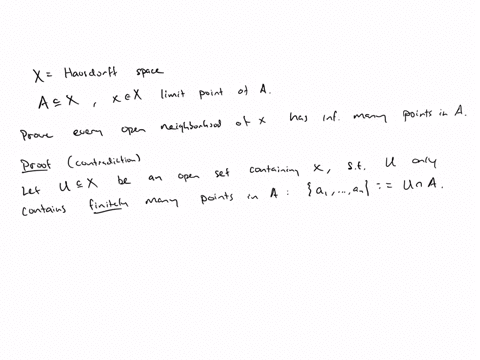 X = Hausdorff space
A ⊆ X , x ∈ X limit point of A.
Prove every open neighborhood of x has inf. many points in A.
Proof (contradiction)
Let U ⊆ X be an open set containing x, s.t. U only
contains finitely many points in A : {a₁, ..., aₙ} := U ∩ A.